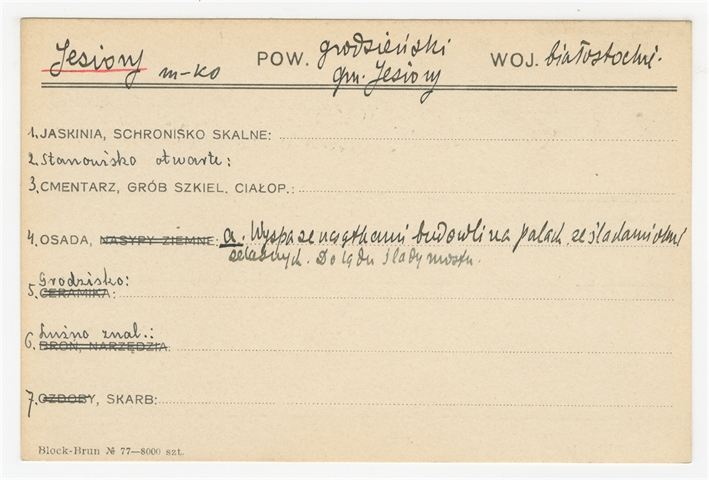 Jesiory m-ko POW. grodzieński WOJ. białostockie.
gm. Jesiory
1. JASKINIA, SCHRONISKO SKALNE:
2. Stanowisko otwarte:
3. CMENTARZ, GRÓB SZKIEL, CIAŁOP.:
4. OSADA, NASYPY ZIEMNE: a. Wyspa ze szczątkami budowli na palach, ze śladami
Do lądu ślady mostu.
Grodzisko:
5. CERAMIKA:
Luźno znal.:
6. BROŃ, NARZĘDZIA
7. OZDOBY, SKARB:
Block-Brun № 77—8000 szt.